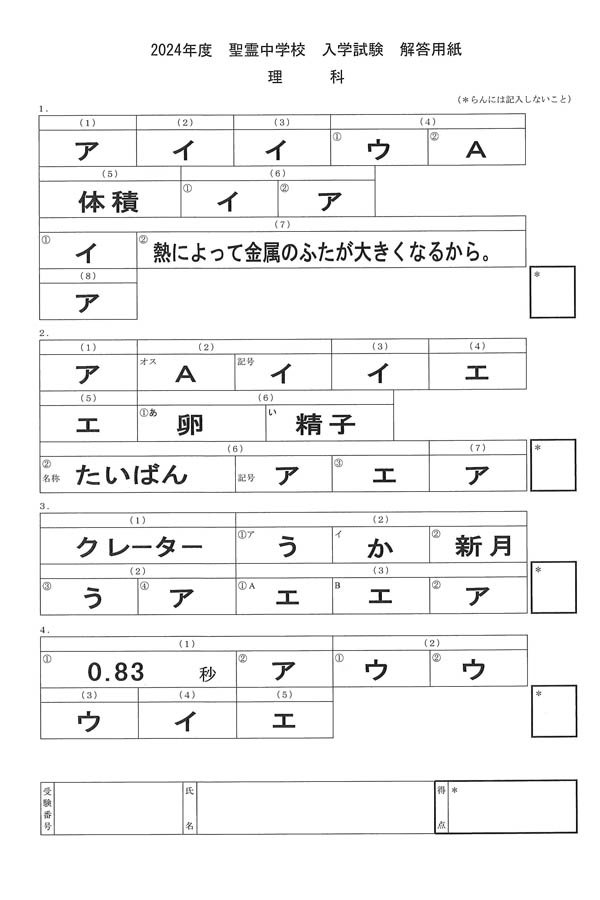 2024年度 聖霊中学校 入学試験 解答用紙
理 科
(＊らんには記入しないこと)
1.
(1) (2) (3) (4)
ア イ イ ①ウ ②A
(5) (6)
体積 ①イ ②ア
(7)
①イ ②熱によって金属のふたが大きくなるから。
(8)
ア
＊
2.
(1) (2) (3) (4)
ア オス A 記号 イ イ エ
(5) (6)
エ ①あ 卵 い 精子
(6) (7)
②名称 たいばん 記号 ア ③エ ア
＊
3.
(1) (2)
クレーター ①ア う イ か ②新月
(2) (3)
③う ④ア ①A エ B エ ②ア
＊
4.
(1) (2)
①0.83 秒 ②ア ①ウ ②ウ
(3) (4) (5)
ウ イ エ
＊
受験番号 氏名 得点 ＊